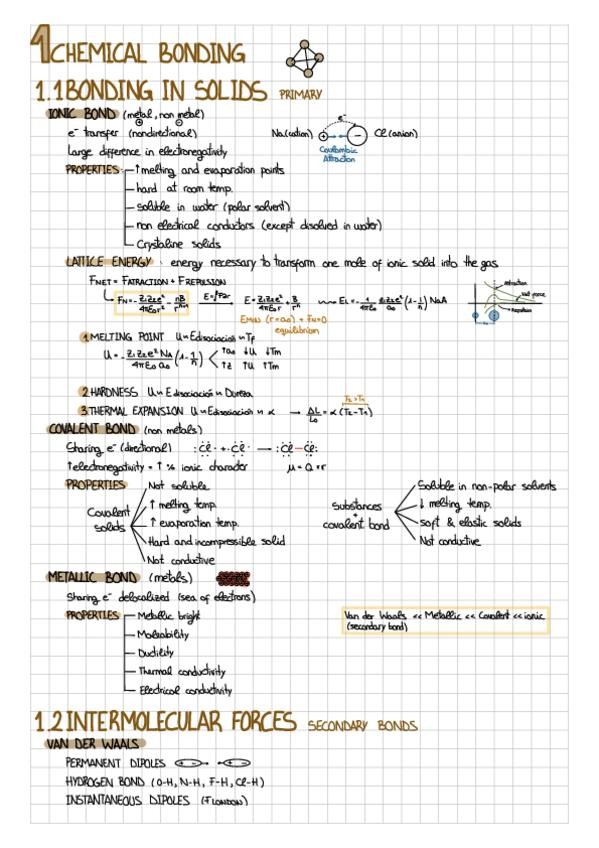 1 CHEMICAL BONDING
1.1 BONDING IN SOLIDS PRIMARY
IONIC BOND (metal, non metal)
⊕ ⊖
e⁻ transfer (nondirectional) Na(cation) e⁻ + − Cl (anion)
Large difference in electronegativity Coulombic Attraction
PROPERTIES ↑melting and evaporation points
hard at room temp.
Soluble in water (polar solvent)
non electrical conductors (except disolved in water)
Crystaline solids
LATTICE ENERGY energy necessary to transform one mole of ionic solid into the gas
FNET = FATRACTION + FREPULSION
FN = - Z1Z2e²/4πE0r² - nB/rⁿ⁺¹ E = Z1Z2e²/4πE0r + B/rⁿ EL = -1/4πE0 Z1Z2e²/a0 (1-1/n) NaA
Attraction
Net force
Repulsion
EMIN (r=a0) + FN=0
equilibrium
1 MELTING POINT U ∝ Edisociación ∝ Tf
U = - Z1Z2e² NA/4πE0 a0 (1-1/n) < ↑a0 ↓U ↓Tm
↑z ↑U ↑Tm
2 HARDNESS U ∝ Edisociación ∝ Dureza
T2 > T1
3 THERMAL EXPANSION U ∝ Edisociación ∝ α → ΔL/L0 = α (T2-T1)
COVALENT BOND (non metals)
Sharing e⁻ (directional) :Cl· + ·Cl: → :Cl–Cl:
↑electronegativity = ↑ % ionic character μ = Q·r
PROPERTIES Not soluble
↑ melting temp.
Covalent solids ↑ evaporation temp.
Hard and incompressible solid
Not conductive
Substances + covalent bond Soluble in non-polar solvents
↓ melting temp.
soft & elastic solids
Not conductive
METALLIC BOND (metals)
Sharing e⁻ delocalized (sea of electrons)
PROPERTIES Metallic bright
Maleability
Ductility
Thermal conductivity
Electrical conductivity
Van der Waals << Metallic << Covalent << ionic
(secondary bond)
1.2 INTERMOLECULAR FORCES SECONDARY BONDS
VAN DER WAALS
PERMANENT DIPOLES
HYDROGEN BOND (O-H, N-H, F-H, Cl-H)
INSTANTANEOUS DIPOLES (F LONDON)